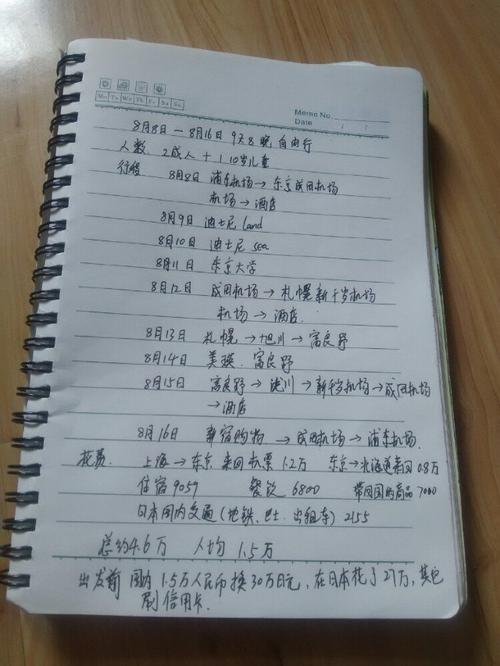 Mo Tu We Th Fr Sa Su
Memo No.
Date / /
8月8日 — 8月16日 9天8晚 自由行
人数: 2成人 + 1 10岁儿童
行程 8月8日 浦东机场 → 东京成田机场
机场 → 酒店
8月9日 迪士尼 land
8月10日 迪士尼 sea
8月11日 东京大学
8月12日 成田机场 → 札幌新千岁机场
机场 → 酒店.
8月13日 札幌 → 旭川 → 富良野
8月14日 美瑛. 富良野
8月15日 富良野 → 旭川 → 新千岁机场 → 成田机场
→ 酒店
8月16日 新宿购物 → 成田机场 → 浦东机场.
花费. 上海 → 东京 来回机票 1.2万 东京 → 北海道来回 0.8万
住宿 9059 餐饮 6800 带回国的商品 7000
日本国内交通 (地铁、巴士. 出租车) 2155
总约4.6万 人均 1.5万
出发前 国内 1.5万人民币换30万日元, 在日本花了27万, 其它
刷信用卡.